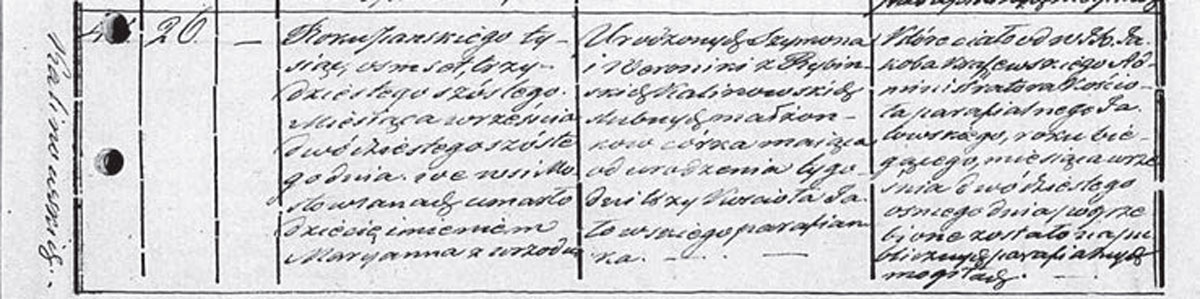 Kalinowskich.
26 —
Roku Pańskiego ty-
siąc, ośmset, trzy-
dziestego szóstego.
Miesiąca września
dwódziestego szóste
go dnia. we wsi Mo
stowianach umarło
dziecię imieniem
Maryanna z wrzodu
Urodzonych Szymona
i Weroniki z Rybin
skich Kalinowskich
slubnych małżon-
ków córka mająca
od urodzenia tygo-
dni trzy Kościoła Ja
łowskiego parafian
ka. —
Które ciało od W. JX. Ja
koba Krajewskiego Ad-
ministratora Kościo
ła parafialnego Ja
łowskiego, roku bie-
gącego, miesiąca wrze
śnia dwódziestego
osmego dnia pogrze
bione zostało na pu
blicznych parafialnych
mogiłach.